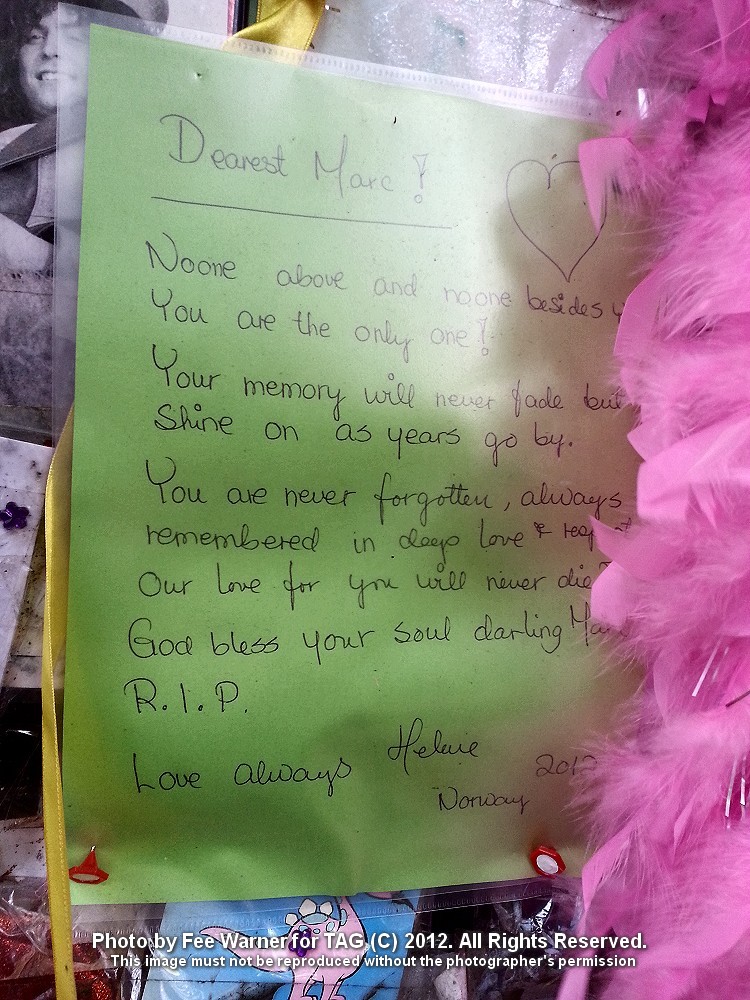 Dearest Marc!
Noone above and noone besides
You are the only one!
Your memory will never fade but
Shine on as years go by.
You are never forgotten, always
remembered in deep love &
Our love for you will never die
God bless your soul darling
R.I.P.
Love always Helene 2012
Norway
Photo by Fee Warner for TAG (C) 2012. All Rights Reserved.
This image must not be reproduced without the photographer's permission